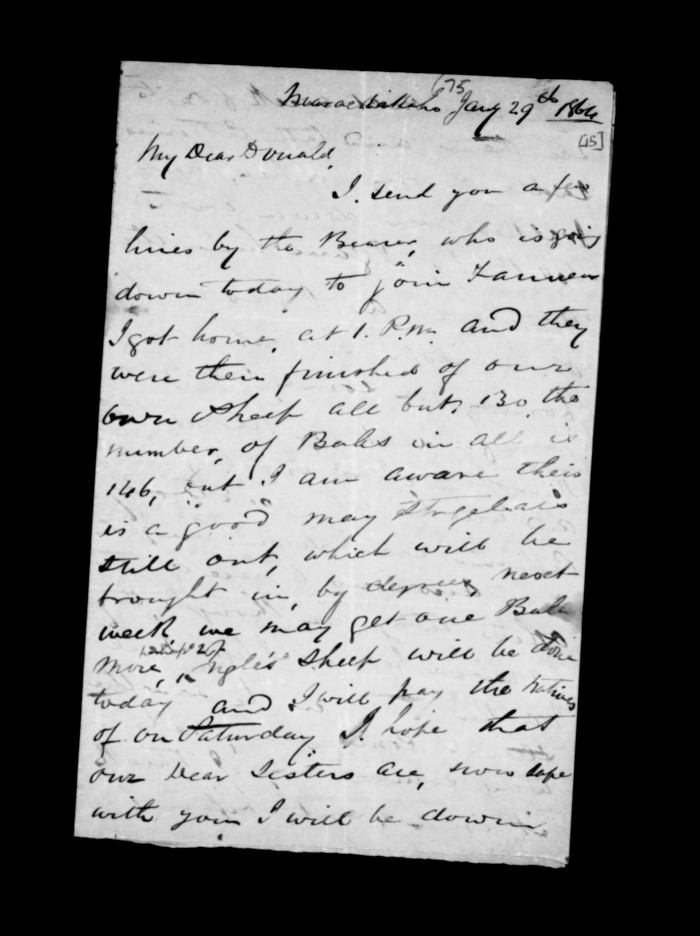 75
Jany 29th 1864
[15]
My Dear Donald,
I send you a few
lines by the Bearer, who is going
down today to join
I got home, at 1. P.m. and they
were then finished of our
own Sheep all but, 130, the
number, of Bales in all is
146, but I am aware their
is a good many
still out, which will be
brought in, by degrees next
week, we may get one Bale
more, Sheep will be done
today and I will pay the natives
of on Saturday I hope that
our Dear Sisters are, now safe
with you I will be down